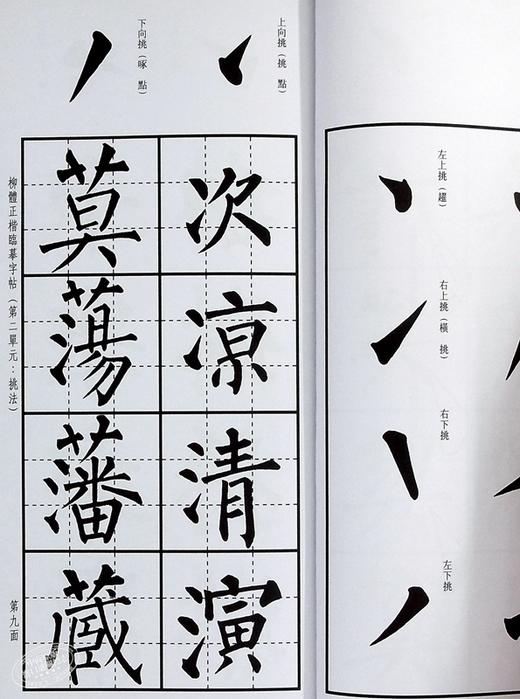 左上挑（趯）
右上挑（橫挑）
右下挑
左下挑
上向挑（挑點）
次
凉
清
演
下向挑（啄點）
莫
蕩
藩
蔵
柳體正楷臨摹字帖（第二單元：挑法）
第九面